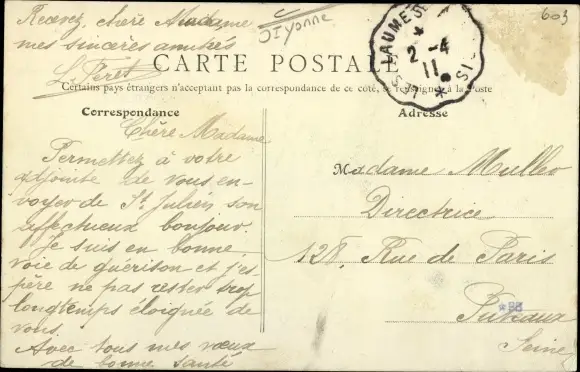 Recevez, chère Madame
mes sincères amitiés
L. Péret
603
2 - 4
11
CARTE POSTALE
Certains pays étrangers n'acceptent pas la correspondance de ce côté, se renseigner à la Poste
Correspondance
Chère Madame
Permettez à votre
adjointe de vous en-
voyer de St Julien son
affectueux bonjour.
Je suis en bonne
voie de guérison et j'es
père ne pas rester trop
longtemps éloignée de
vous.
Avec tous mes vœux
de bonne santé
Adresse
Madame Muller
Directrice
128, Rue de Paris
Puteaux
Seine